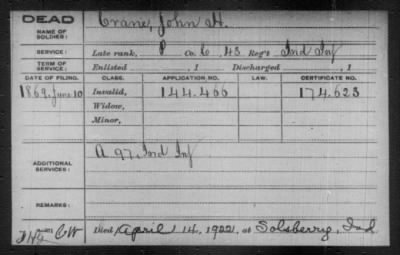 DEAD
NAME OF SOLDIER: Crane, John H.
SERVICE: Late rank, P Co. C, 43 Reg't Ind Inf
TERM OF SERVICE: Enlisted , 1 Discharged , 1
DATE OF FILING. CLASS. APPLICATION NO. LAW. CERTIFICATE NO.
1869, June 10 Invalid, 144.466 174.623
Widow,
Minor,
ADDITIONAL SERVICES: A 97, Ind Inf
REMARKS:
CW Died April 14, 1922, at Solsberry, Ind